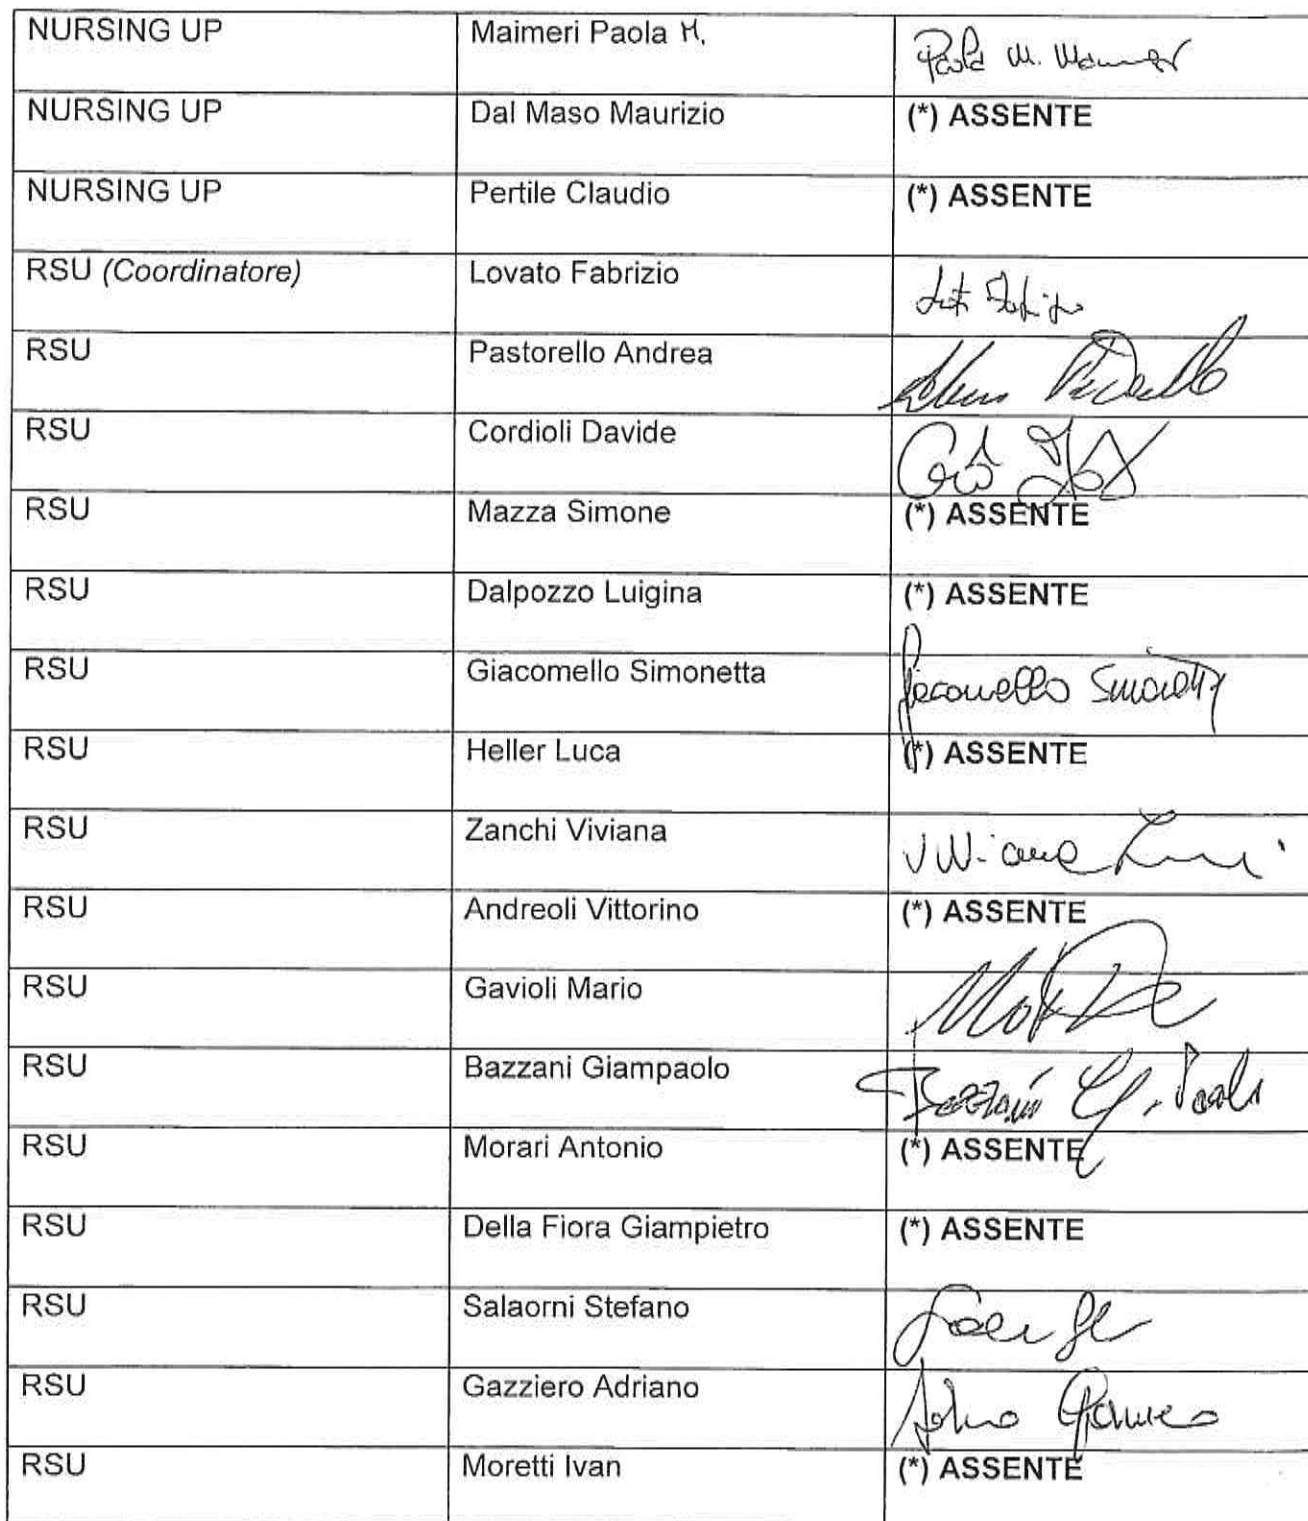 NURSING UP Maimeri Paola M. Paola M.
NURSING UP Dal Maso Maurizio (*) ASSENTE
NURSING UP Pertile Claudio (*) ASSENTE
RSU (Coordinatore) Lovato Fabrizio
RSU Pastorello Andrea
RSU Cordioli Davide
RSU Mazza Simone (*) ASSENTE
RSU Dalpozzo Luigina (*) ASSENTE
RSU Giacomello Simonetta Giacomello Simonetta
RSU Heller Luca (*) ASSENTE
RSU Zanchi Viviana Viviana
RSU Andreoli Vittorino (*) ASSENTE
RSU Gavioli Mario
RSU Bazzani Giampaolo Bazzani G. Paolo
RSU Morari Antonio (*) ASSENTE
RSU Della Fiora Giampietro (*) ASSENTE
RSU Salaorni Stefano
RSU Gazziero Adriano
RSU Moretti Ivan (*) ASSENTE